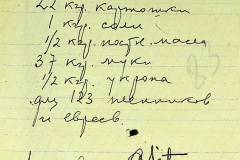 22 кгр. картошки
1 кгр. соли
1/2 кгр. постн. масла
37 кгр. муки
1/2 кгр. укропа
для 123 пленников
и евреев.
83